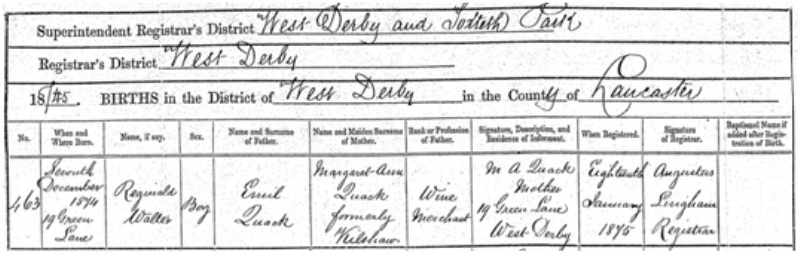 Superintendent Registrar's District West Derby and Toxteth Park
Registrar's District West Derby
1875. BIRTHS in the District of West Derby in the County of Lancaster
No.
When and
Where Born.
Name, if any.
Sex.
Name and Surname
of Father.
Name and Maiden Surname
of Mother.
Rank or Profession
of Father.
Signature, Description, and
Residence of Informant.
When Registered.
Signature
of Registrar.
Baptismal Name if
added after Regis-
tration of Birth.
463
Seventh
December
1874
19 Green
Lane
Reginald
Walter
Boy
Emil
Quack
Margaret-Ann
Quack
formerly
Kilshaw
Wine
Merchant
M A Quack
Mother
19 Green Lane
West Derby
Eighteenth
January
1875
Augustus
Lingham
Registrar